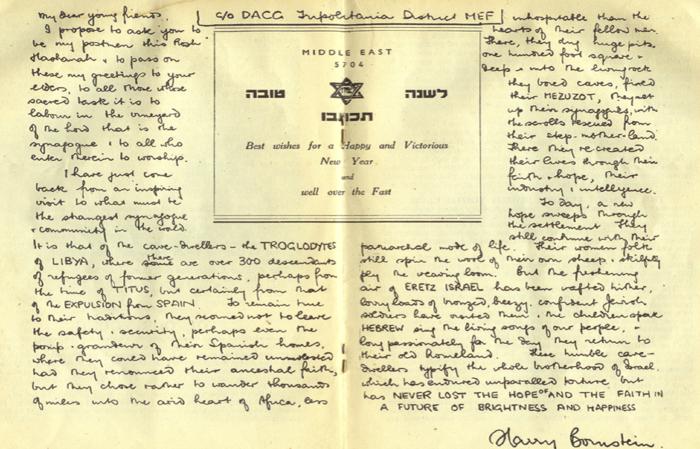 c/o DACG Tripolitania District MEF
My dear young friends,
I propose to ask you to
be my postmen this Rosh
Hashanah & to pass on
these my greetings to your
elders, to all those whose
sacred task it is to
labour in the vineyard
of the Lord that is the
synagogue & to all who
enter therein to worship.
I have just come
back from an inspiring
visit to what must be
the strangest synagogue
& community in the world.
MIDDLE EAST
5704
לשנה טובה
תכתבו
Best wishes for a Happy and Victorious
New Year
and
well over the Fast
It is that of the cave-dwellers – the TROGLODYTES
of LIBYA, where there are over 300 descendants
of refugees of former generations, perhaps from
the time of TITUS, but certainly from that
of the EXPULSION from SPAIN. To remain true
to their traditions, they scorned not to leave
the safety & security, perhaps even the
pomp & grandeur of their Spanish homes,
where they could have remained unmolested
had they renounced their ancestral faith,
but they chose rather to wander thousands
of miles into the arid heart of Africa, less
inhospitable than the
hearts of their fellow men.
There, they dug huge pits,
one hundred foot square &
deep & into the living rock
they bored caves, fixed
their MEZUZOT, they set
up their synagogues, with
the scrolls rescued from
their step-mother-land.
There they re-created
their lives through their
faith & hope, their
industry & intelligence.
To day, a new
hope sweeps through
the settlement. They
still continue with their
patriarchal mode of life. Their women folk
still spin the wool of their own sheep & skilfully
ply the weaving loom. But the freshening
air of ERETZ ISRAEL has been wafted hither,
lorry loads of bronzed, breezy, confident Jewish
soldiers have visited them & the children speak
HEBREW sing the living songs of our people, &
long passionately for the day they return to
their old homeland. These humble cave-
dwellers typify the whole brotherhood of Israel,
which has endured unparalleled torture, but
has NEVER LOST THE HOPE OF AND THE FAITH IN
A FUTURE OF BRIGHTNESS AND HAPPINESS
Harry Bornstein.